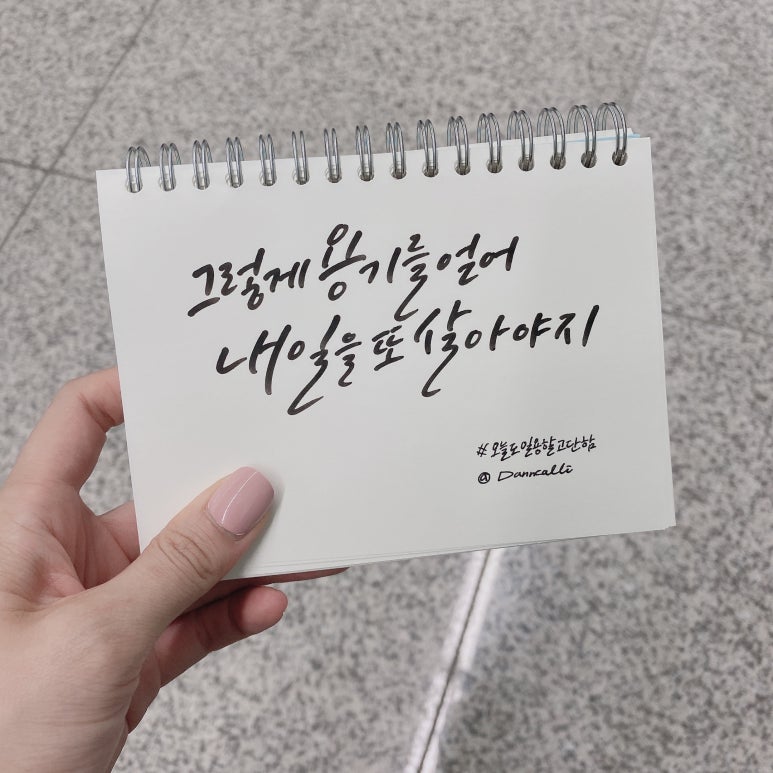 그렇게 용기를 얻어
내일을 또 살아야지
#오늘도일용할고단함
@ Danncalli